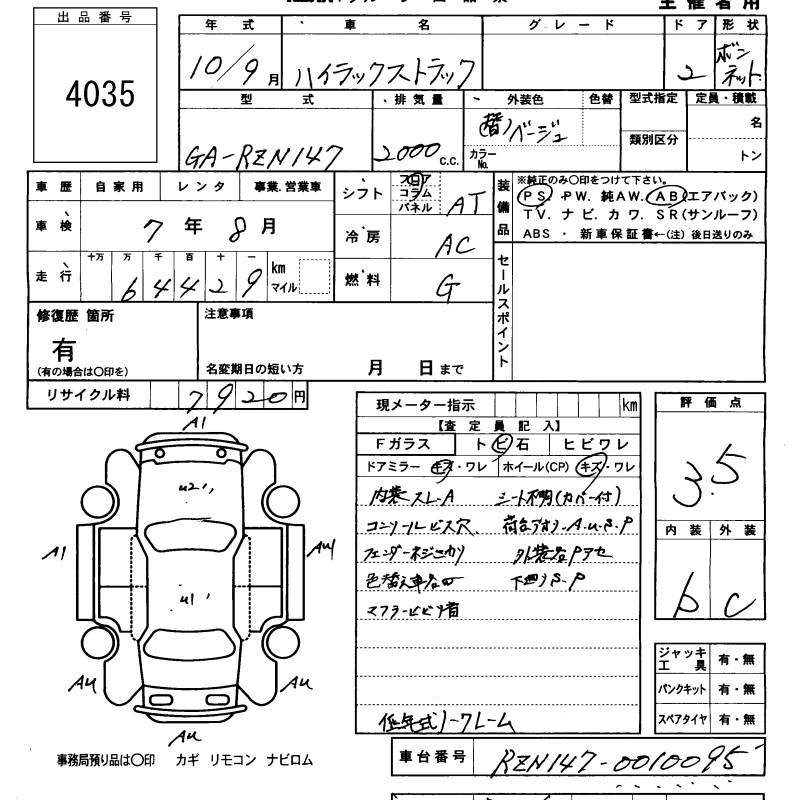 主催者用
出品番号
4035
年式 車名 グレード ドア 形状
10/9月 ハイラックストラック 2 ボンネット
型式 排気量 外装色 色替 型式指定 定員・積載
GA-RZN147 2000 c.c. (替)ベージュ カラーNo. 類別区分 名
トン
車歴 自家用 レンタ 事業.営業車
車検 7年8月
走行 十万 万 千 百 十 一
64429 km マイル
シフト フロア コラム パネル AT
冷房 AC
燃料 G
装備品
※純正のみ〇印をつけて下さい。
PS. PW. 純AW. AB(エアバック)
TV. ナビ. カワ. SR(サンルーフ)
ABS ・ 新車保証書←(注) 後日送りのみ
セールスポイント
修復歴 箇所
有
(有の場合は〇印を)
注意事項
名変期日の短い方 月 日まで
リサイクル料 7920円
現メーター指示 km
【査定員記入】
Fガラス トビ石 ヒビワレ
ドアミラー キズ・ワレ ホイール(CP) キズ・ワレ
内装スレ-A シート不明(カバー付)
コンソールビス穴、 荷台アオリ-A.u.S.P
フェンダーネジ
色替え車 下廻りS.P
マフラービビリ音
低年式ノークレーム
評価点
3.5
内装 外装
b C
ジャッキ工具 有・無
パンクキット 有・無
スペアタイヤ 有・無
A1
u2
A1
Au1
u1
Au
Au
Au
事務局預り品は〇印 カギ リモコン ナビロム
車台番号 RZN147-0010095